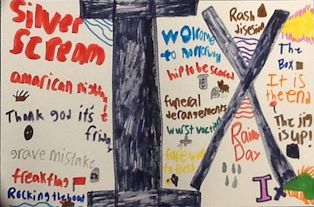 Silver
Scream
american nightmare
Thank god it's
friday
grave mistake
freakflag
Rocking the boat
Welcome
to
hip to be scared
funeral
derangements
wurst vacation
Rash
disesion
Rainy
Day
The
Box
It is
the end
The jig
is up!
Ix